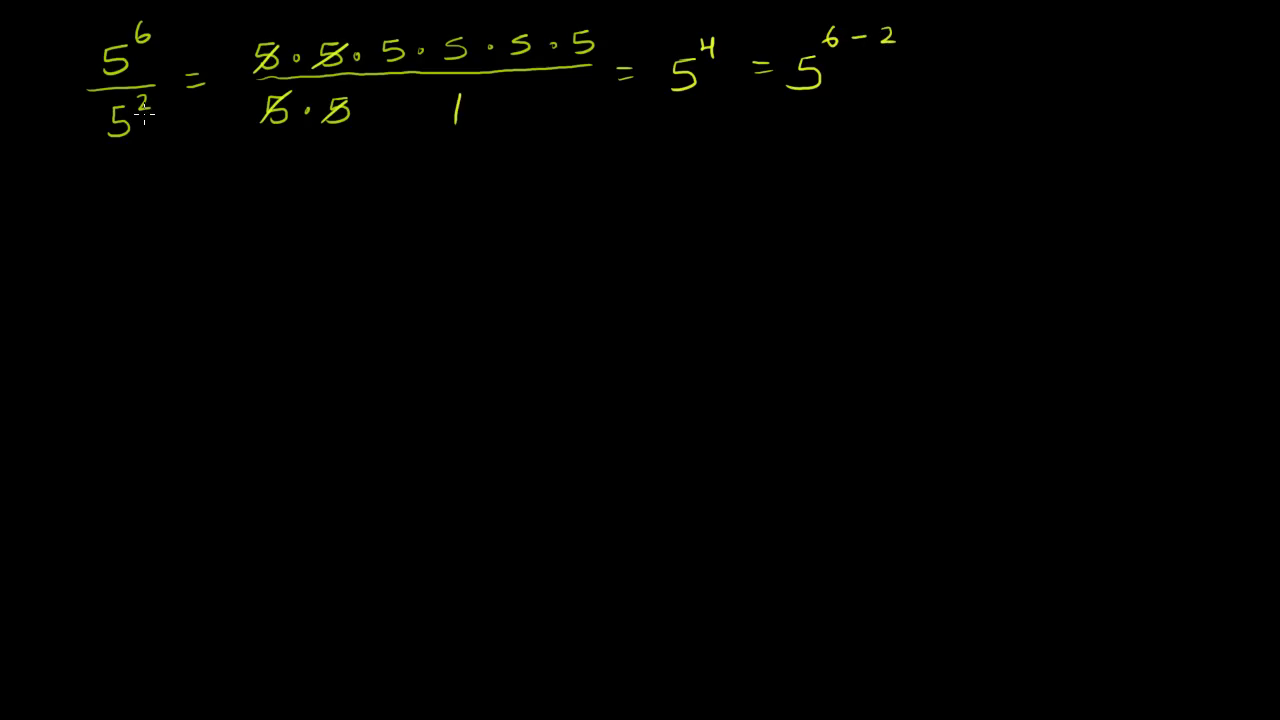 5^6 / 5^2 = 5 · 5 · 5 · 5 · 5 · 5 / 5 · 5 1 = 5^4 = 5^{6 - 2}